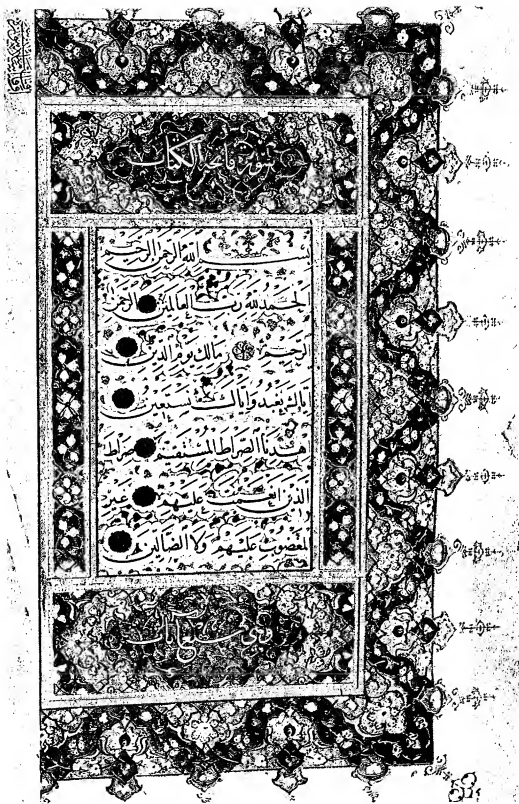 سورة فاتحة الكتاب
بسم الله الرحمن الرحيم
الحمد لله رب العالمين الرحمن
الرحيم مالك يوم الدين
اياك نعبد واياك نستعين
هدنا الصراط المستقيم صراط
الذين انعمت عليهم غير
لمغضوب عليهم ولا الضالين
وهي سبع ايات